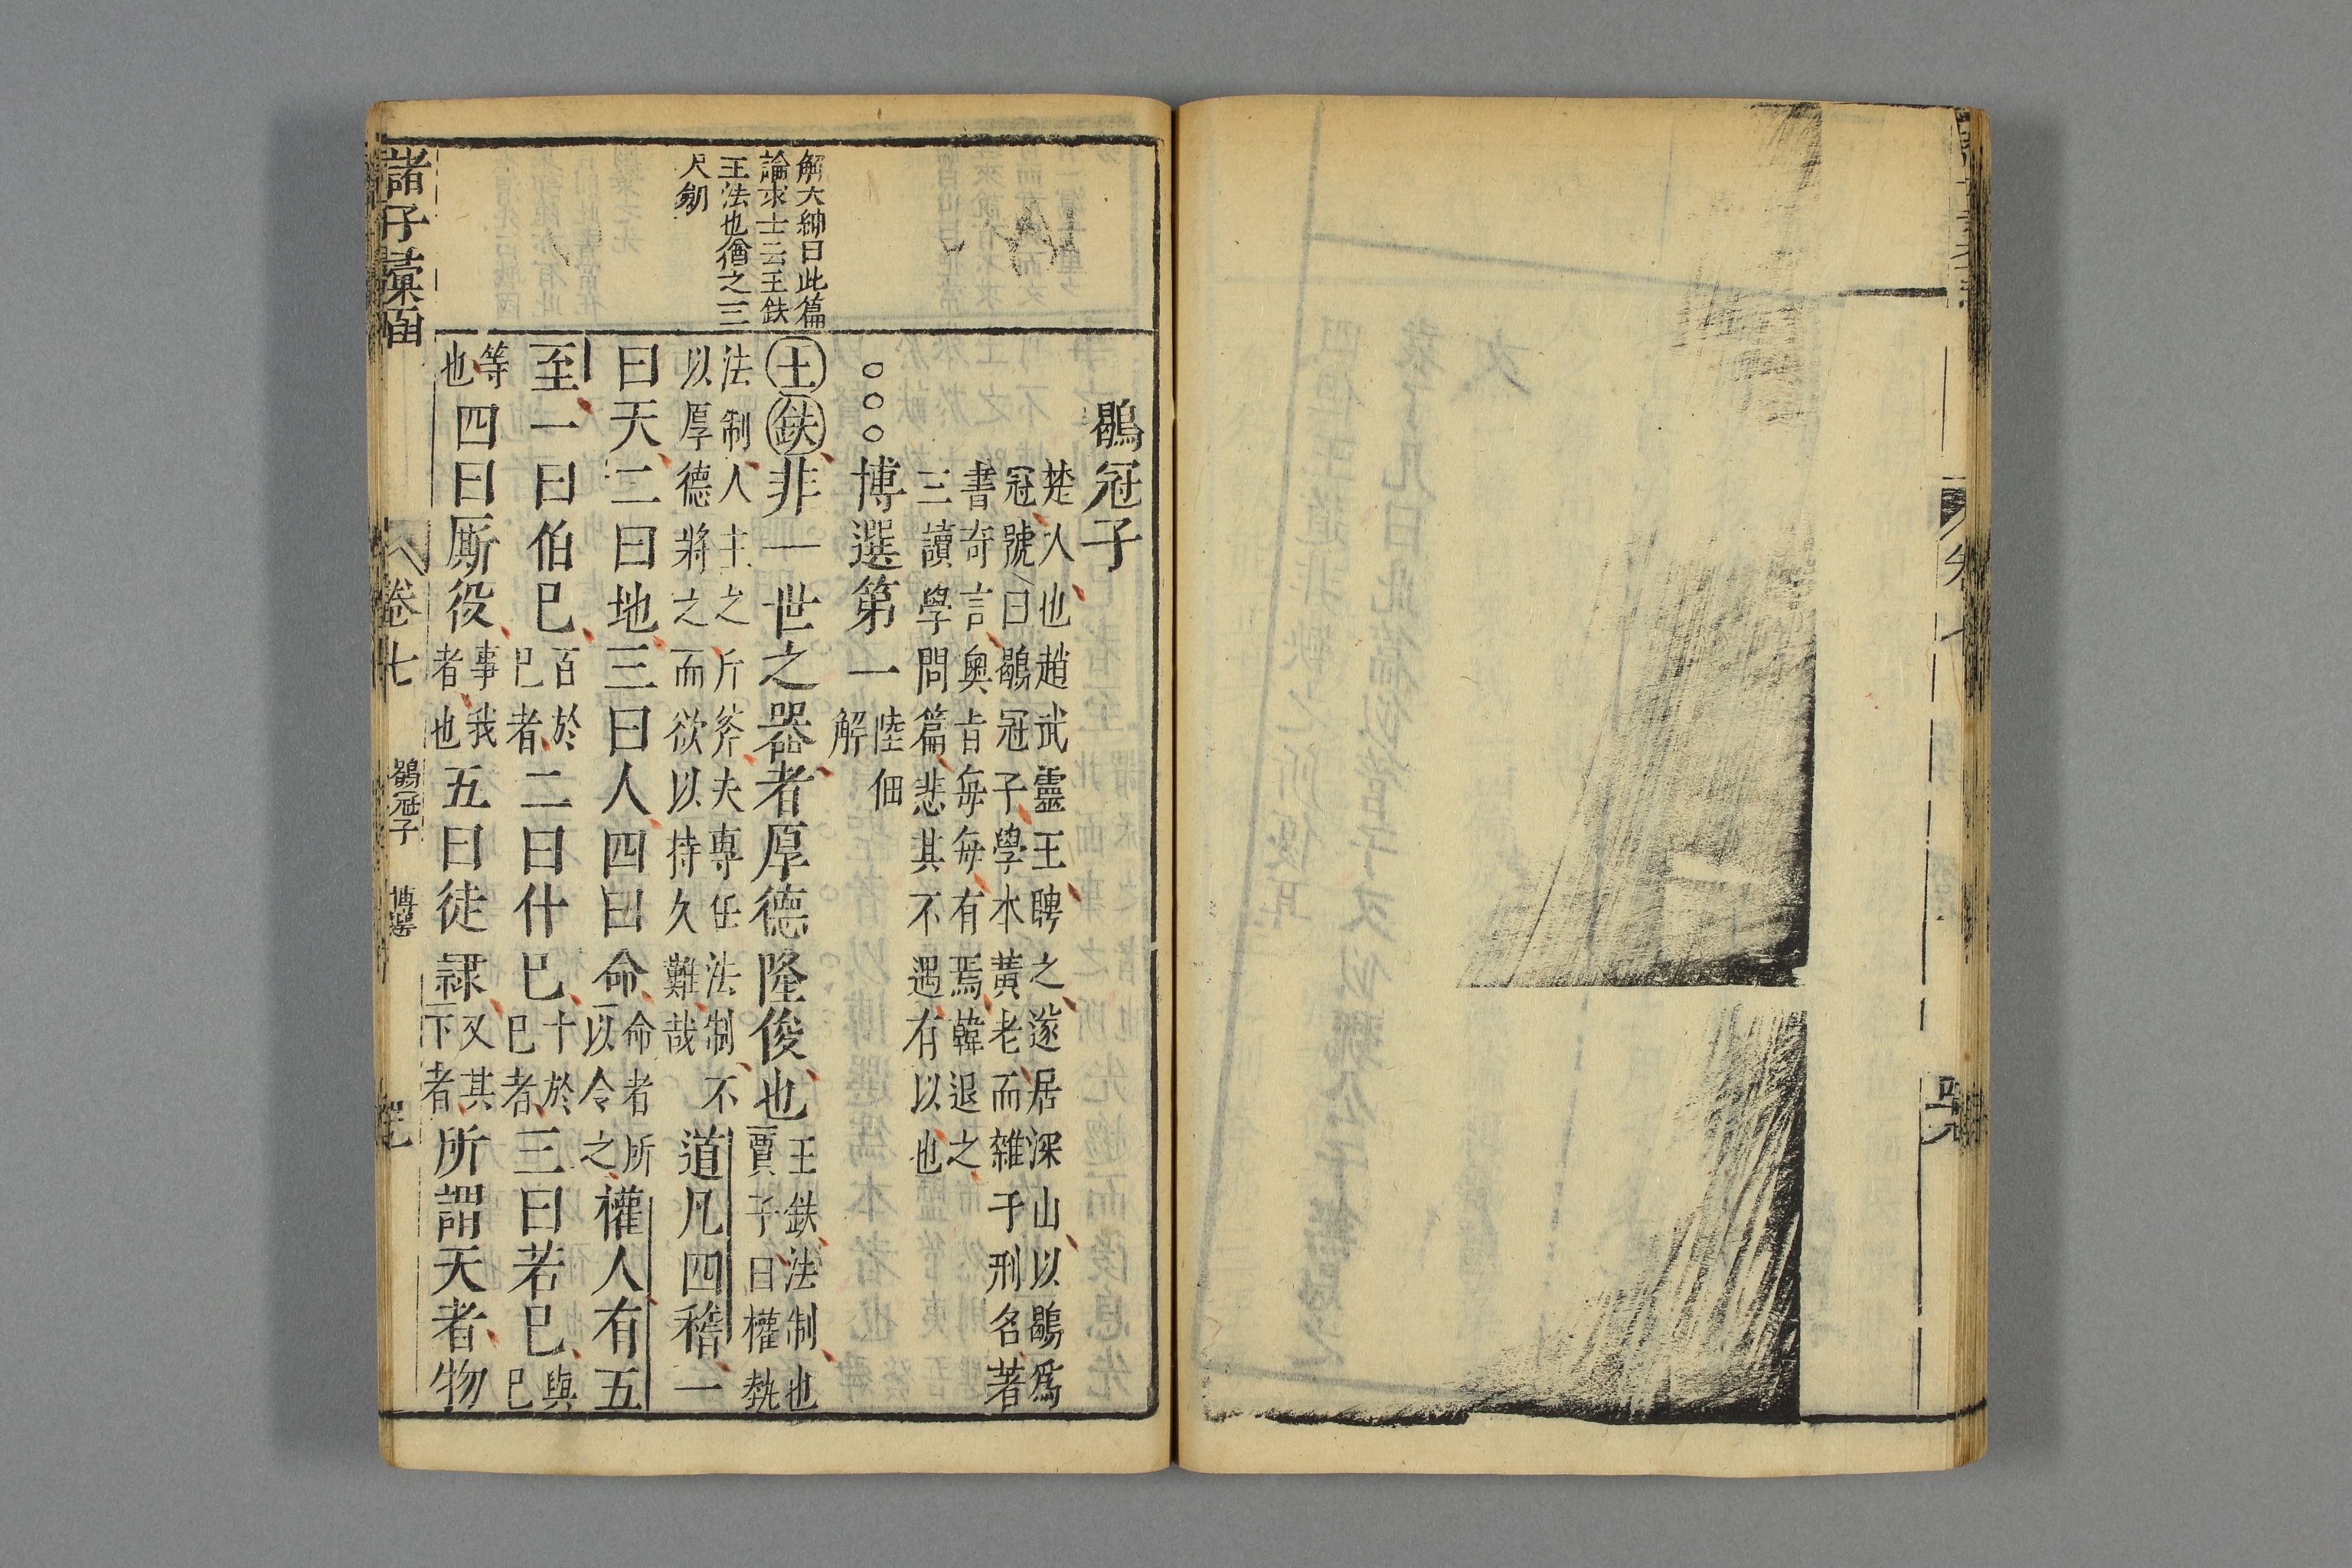 鶡冠子
楚人也趙武靈王聘之遂居深山以鶡爲
冠號曰鶡冠子學本黃老而雜于刑名著
書奇言奧旨每每有焉韓退之
三讀學問篇悲其不遇有以也
○○○博選第一
陸佃
解
解大紳曰此篇
論求士云王鈇
王法也猶之三
尺劒
王鈇非一世之器者厚德隆俊也
王鈇法制也
賈子曰權勢
法制人主之斤斧夫專任法制不
以厚德將之而欲以持久難哉
道凡四稽一
曰天二曰地三曰人四曰命
命者所
以令之
權人有五
至一曰伯巳
百於
巳者
二曰什巳
十於
巳者
三曰若巳
與
巳
等
也
四曰厮役
事我
者也
五曰徒禄
又其
下者
所謂天者物
諸子彙函
卷七
鶡冠子
博選